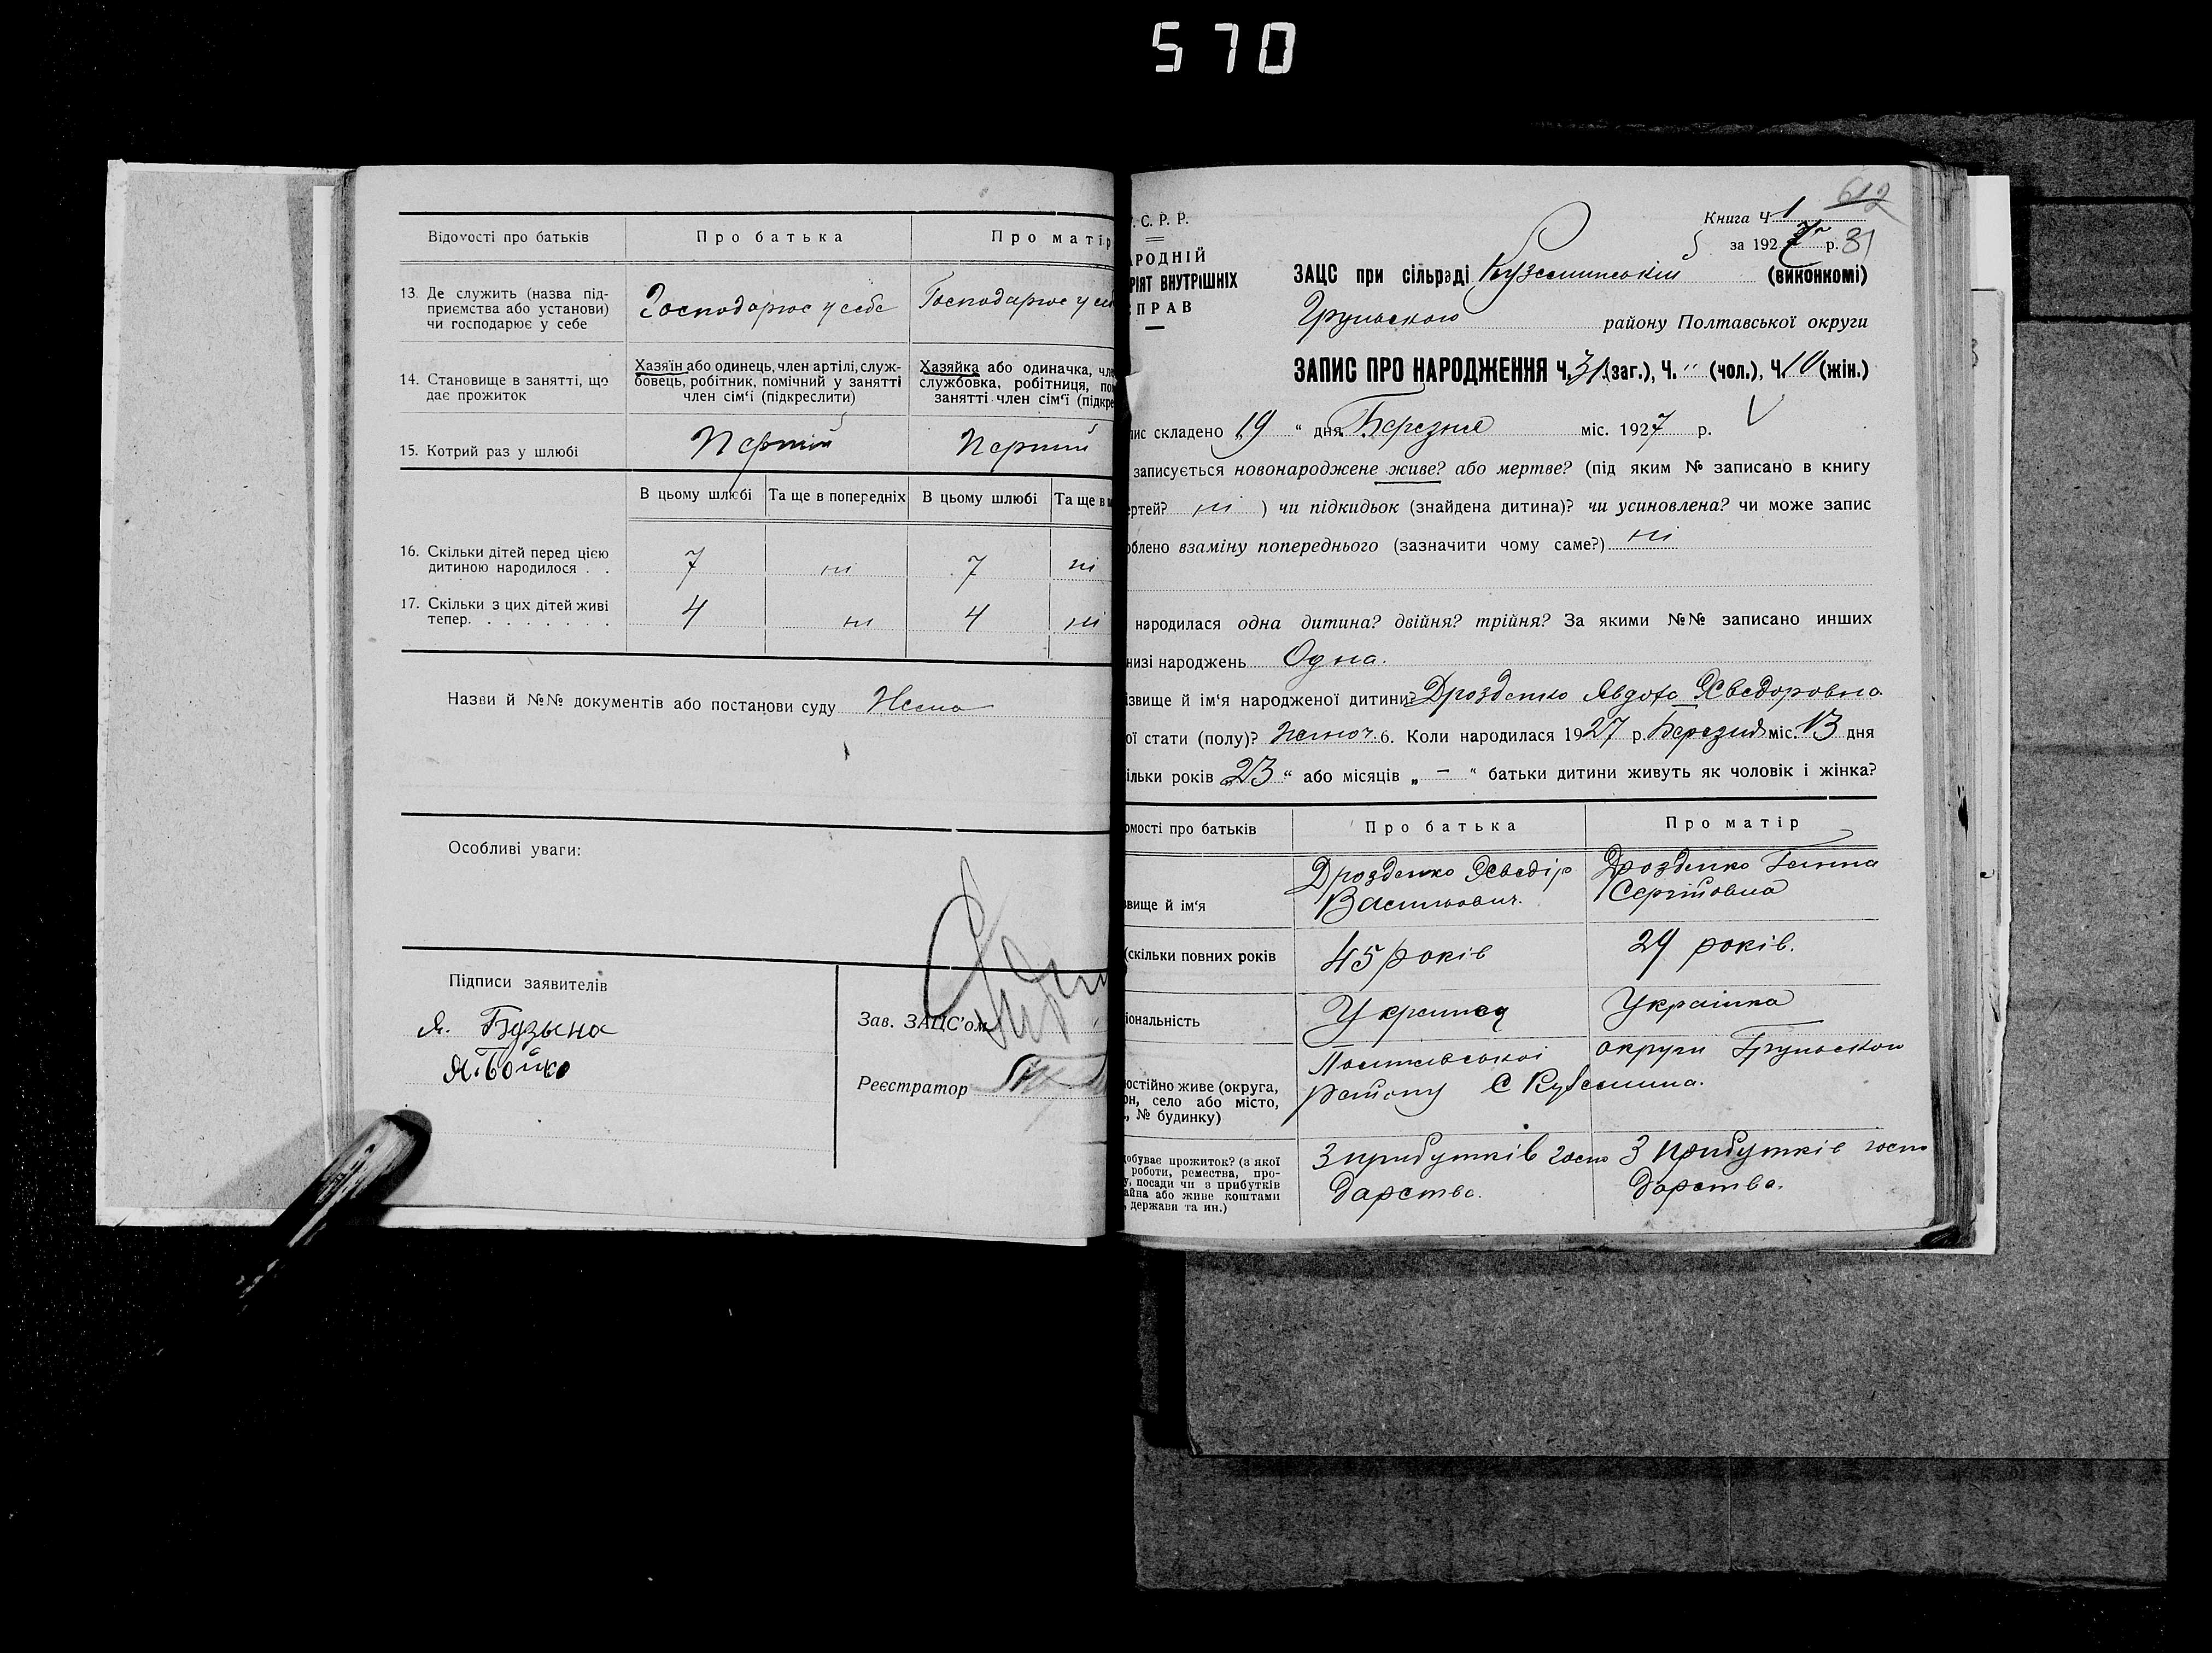 570
Відомості про батьків
Про батька
Про матір
13. Де служить (назва під-
приємства або установи)
чи господарює у себе
Господарює у себе
Господарює у се
14. Становище в занятті, що
дає прожиток
Хазяїн або одинець, член артілі, служ-
бовець, робітник, помічний у занятті
член сім‘ї (підкреслити)
Хазяйка або одиначка, чле
службовка, робітниця, по
занятті член сім‘ї (підкре
15. Котрий раз у шлюбі
Перший
Перший
В цьому шлюбі
Та ще в попередніх
В цьому шлюбі
Та ще в п
16. Скільки дітей перед цією
дитиною народилося . .
7 ні 7 ні
17. Скільки з цих дітей живі
тепер. . . . . . . .
4 ні 4 ні
Назви й №№ документів або постанови суду Нема
Особливі уваги:
Підписи заявителів
Я. Бузына
Я. Бойко
Зав. ЗАЦС’ом
Реєстратор
612
Книга Ч 1
за 1927 р. 31
.С.Р.Р.
АРОДНІЙ
РІЯТ ВНУТРІШНІХ
ПРАВ
ЗАЦС при сільраді Куземинській (виконкомі)
Грунського району Полтавської округи
ЗАПИС ПРО НАРОДЖЕННЯ Ч. 31 (заг.), Ч. " (чол.), Ч. 10 (жін.)
пис складено „19 “ дня Березня міс. 1927 р.
записується новонароджене живе? або мертве? (під яким № записано в книгу
ртей? ні ) чи підкидьок (знайдена дитина)? чи усиновлена? чи може запис
облено взаміну попереднього (зазначити чому саме?) ні
народилася одна дитина? двійня? трійня? За якими №№ записано инших
низі народжень Одна.
ізвище й ім‘я народженої дитини? Дрозденко Явдоха Хведоровна
ої стати (полу)? Жіноч. 6. Коли народилася 1927 р. Березня міс. 13 дня
ільки років „23 “ або місяців „ – “ батьки дитини живуть як чоловік і жінка?
омості про батьків
Про батька
Про матір
звище й ім‘я
Дрозденко Хведір
Васильович.
Дрозденко Ганна
Сергіїовна
(скільки повних років
45 років
29 років.
іональність
Українец
Українка
остійно живе (округа,
он, село або місто,
., № будинку)
Полтавської округи Грунського
району С Куземина.
обуває прожиток? (з якої
роботи, ремества, про-
у, посади чи з прибутків
айна або живе коштами
, держави та ин.)
З прибутків госпо
дарства.
З прибутків госпо
дарства.